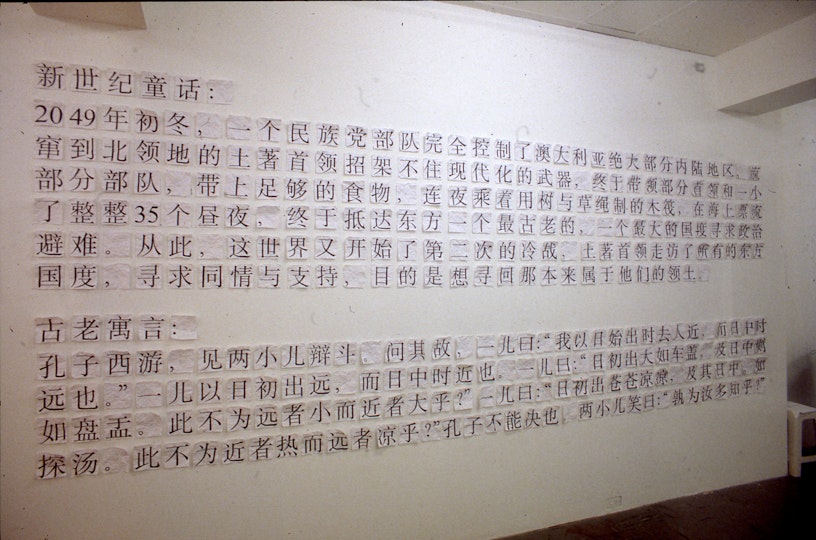 新世纪童话：
2049年初冬，一个民族党部队完全控制了澳大利亚绝大部分内陆地区，流
窜到北领地的土著首领招架不住现代化的武器，终于带领部分首领和一小
部分部队，带上足够的食物，连夜乘着用树与草绳制的木筏，在海上漂流
了整整35个昼夜，终于抵达东方一个最古老的，一个最大的国度寻求政治
避难。从此，这世界又开始了第二次的冷战，土著首领走访了所有的东方
国度，寻求同情与支持，目的是想寻回那本来属于他们的领土。
古老寓言：
孔子西游，见两小儿辩斗。问其故，一儿曰：“我以日始出时去人近，而日中时
远也。”一儿以日初出远，而日中时近也。一儿曰：“日初出大如车盖，及日中则
如盘盂。此不为远者小而近者大乎？”一儿曰：“日初出苍苍凉凉，及其日中，如
探汤。此不为近者热而远者凉乎？”孔子不能决也。两小儿笑曰：“孰为汝多知乎？”